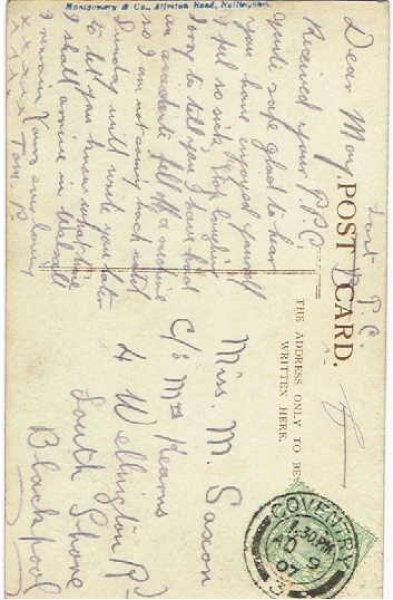 Montgomery & Co., Alfreton Road, Nottingham.
POST CARD.
THE ADDRESS ONLY TO BE
WRITTEN HERE.
Last P. C.
Dear May,
Received your P.P.C.
quite safe glad to hear
you have enjoyed yourself
I feel so sick Stop laughing
Sorry to tell you I have had
an accident fell off a machine
so I am not coming back until
Sunday will write you later
to let you know what time
I shall arrive in Walsall
I remain Yours ever loving
x x x x x Tom P.
Miss. M. Saxon
C/o Mrs Kearns
4 Wellington Rd
South Shore
Blackpool
COVENTRY
1.30 PM
9
07
3